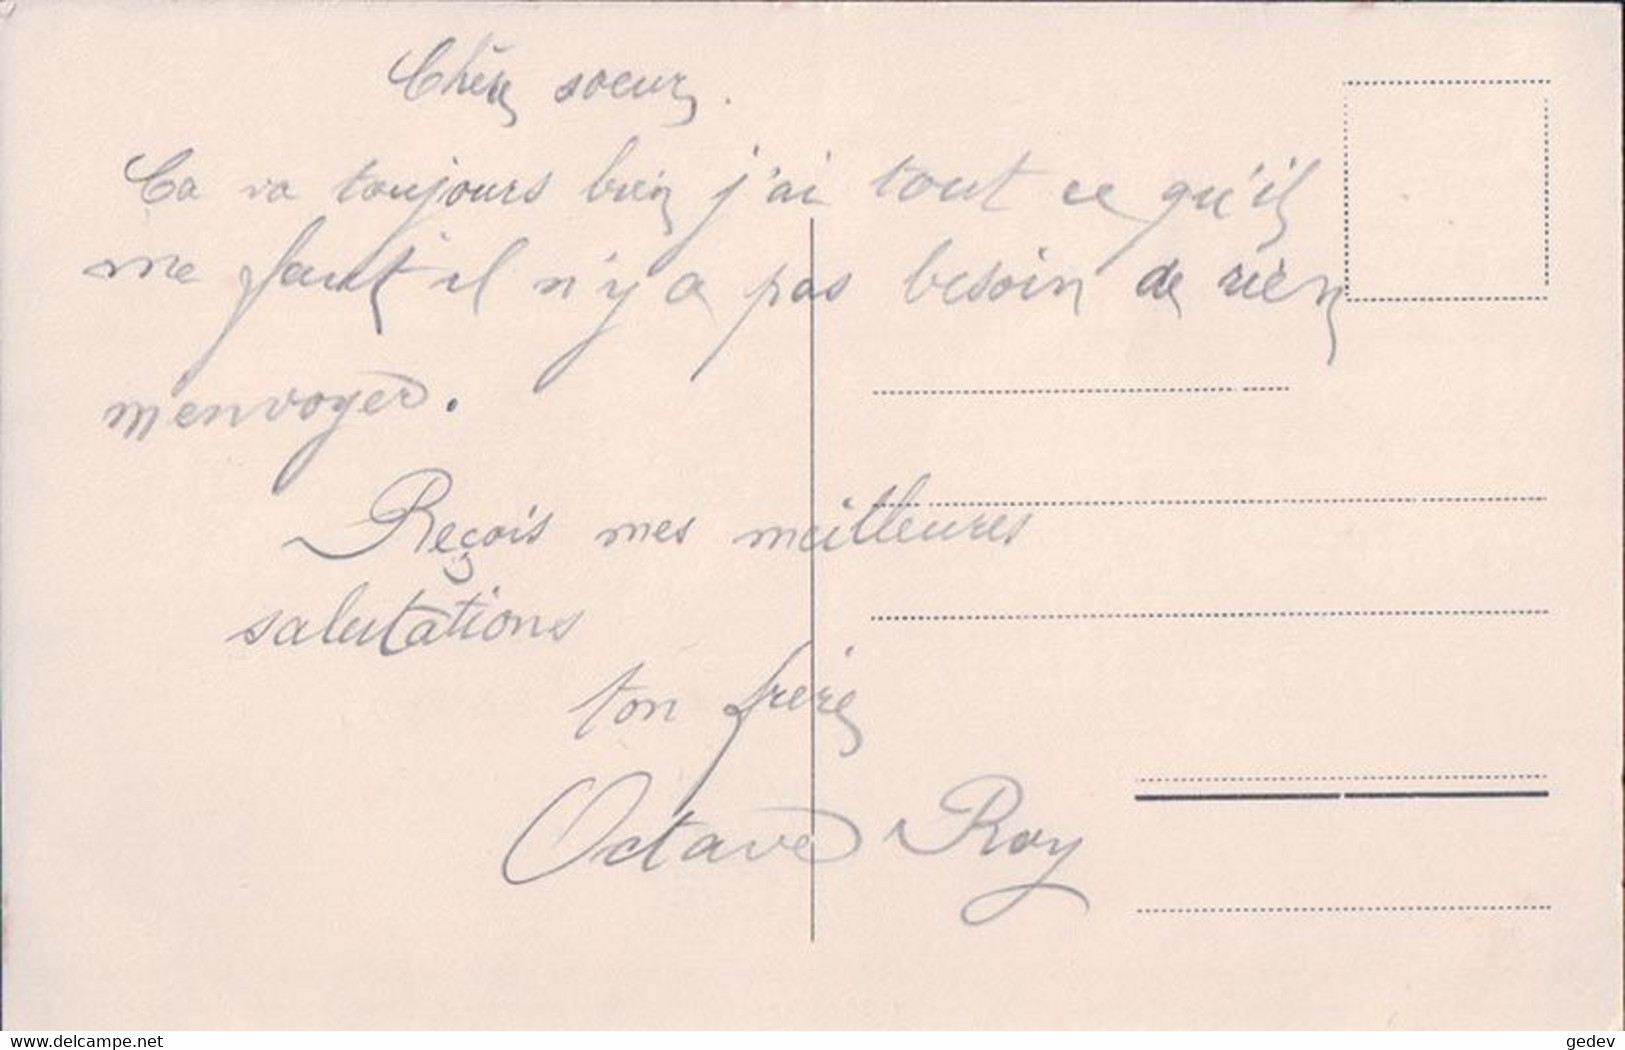 Chère soeur.
Ca va toujours bien j'ai tout ce qu'il
me faut il n'y a pas besoin de rien
m'envoyer.
Reçois mes meilleures
salutations
ton frère
Octave Roy
www.delcampe.net
gedev